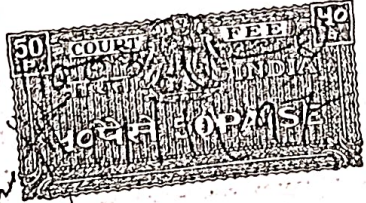 50 COURT FEE ५०
P. INDIA पै.
५०पैसे 50PAISE